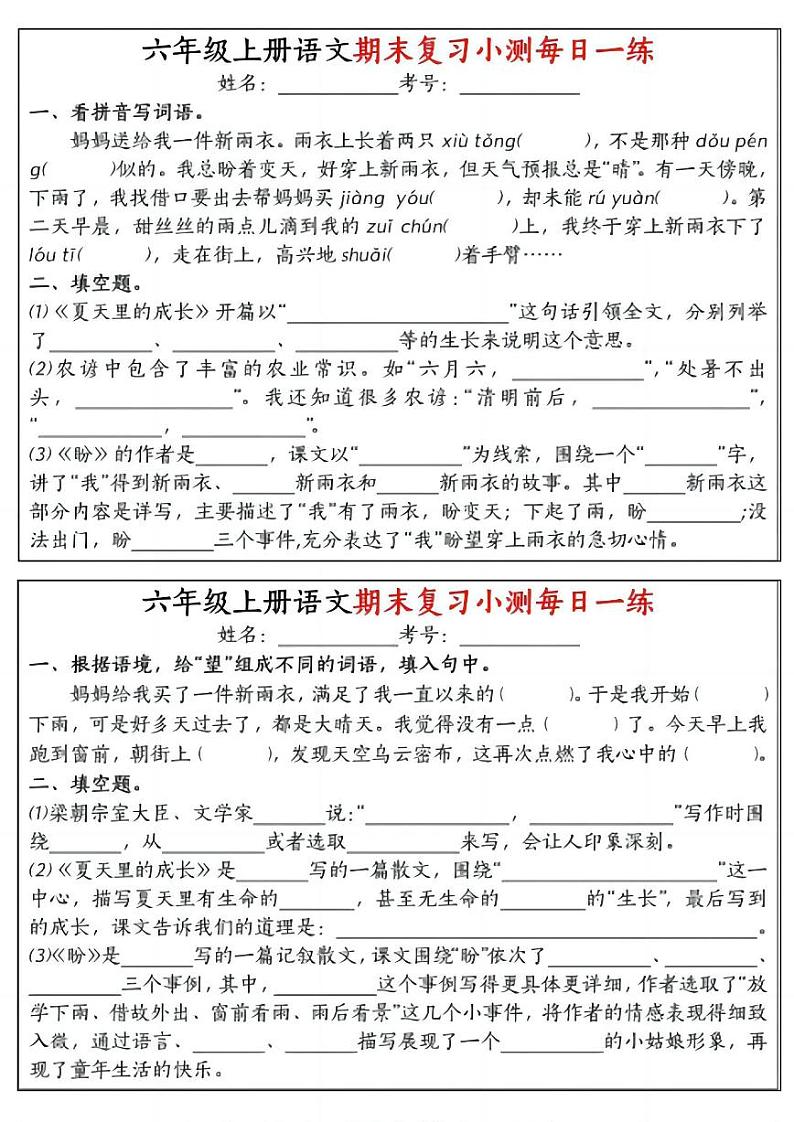 六年级上册语文期末复习小测每日一练
姓名：__________考号：__________
一、看拼音写词语。
妈妈送给我一件新雨衣。雨衣上长着两只 xiù tǒng(　　　)，不是那种 dǒu pén
g(　　　)似的。我总盼着变天，好穿上新雨衣，但天气预报总是“晴”。有一天傍晚，
下雨了，我找借口要出去帮妈妈买 jiàng yóu(　　　)，却未能 rú yuàn(　　　)。第
二天早晨，甜丝丝的雨点儿滴到我的 zuǐ chún(　　　)上，我终于穿上新雨衣下了
lóu tī(　　　)，走在街上，高兴地 shuāi(　　　)着手臂……
二、填空题。
(1)《夏天里的成长》开篇以“____________________”这句话引领全文，分别列举
了__________、__________、__________等的生长来说明这个意思。
(2)农谚中包含了丰富的农业常识。如“六月六，____________”,“处暑不出
头，______________”。我还知道很多农谚:“清明前后，______________”，
“____________，____________”。
(3)《盼》的作者是______，课文以“__________”为线索，围绕一个“______”字，
讲了“我”得到新雨衣、______新雨衣和______新雨衣的故事。其中______新雨衣这
部分内容是详写，主要描述了“我”有了雨衣，盼变天；下起了雨，盼________;没
法出门，盼________三个事件,充分表达了“我”盼望穿上雨衣的急切心情。
六年级上册语文期末复习小测每日一练
姓名：__________考号：__________
一、根据语境，给“望”组成不同的词语，填入句中。
妈妈给我买了一件新雨衣，满足了我一直以来的（　　　）。于是我开始（　　　）
下雨，可是好多天过去了，都是大晴天。我觉得没有一点（　　　）了。今天早上我
跑到窗前，朝街上（　　　），发现天空乌云密布，这再次点燃了我心中的（　　　）。
二、填空题。
(1)梁朝宗室大臣、文学家______说：“____________，____________”写作时围
绕______，从__________或者选取__________来写，会让人印象深刻。
(2)《夏天里的成长》是______写的一篇散文，围绕“____________________”这一
中心，描写夏天里有生命的______，甚至无生命的________的“生长”，最后写到
的成长，课文告诉我们的道理是：________________________________________。
(3)《盼》是______写的一篇记叙散文，课文围绕“盼”依次了__________、__________、
________三个事例，其中，__________这个事例写得更具体更详细，作者选取了“放
学下雨、借故外出、窗前看雨、雨后看景”这几个小事件，将作者的情感表现得细致
入微，通过语言、______、______描写展现了一个__________的小姑娘形象，再
现了童年生活的快乐。